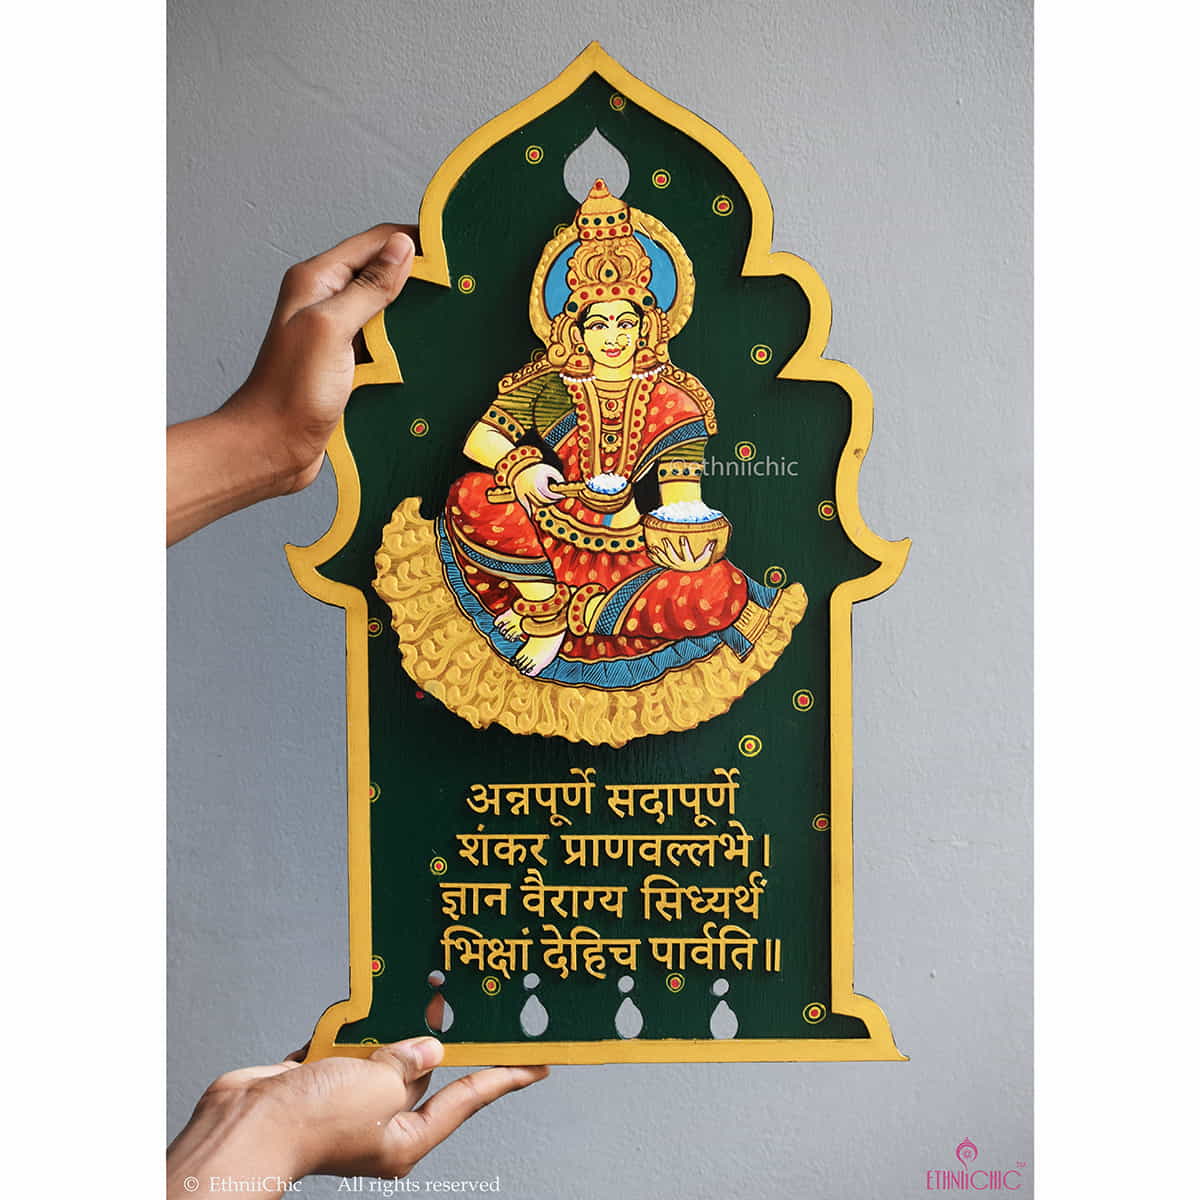 @ethniichic
अन्नपूर्णे सदापूर्णे
शंकर प्राणवल्लभे।
ज्ञान वैराग्य सिध्यर्थं
भिक्षां देहिच पार्वति॥
© EthniiChic All rights reserved
ETHNIICHIC™